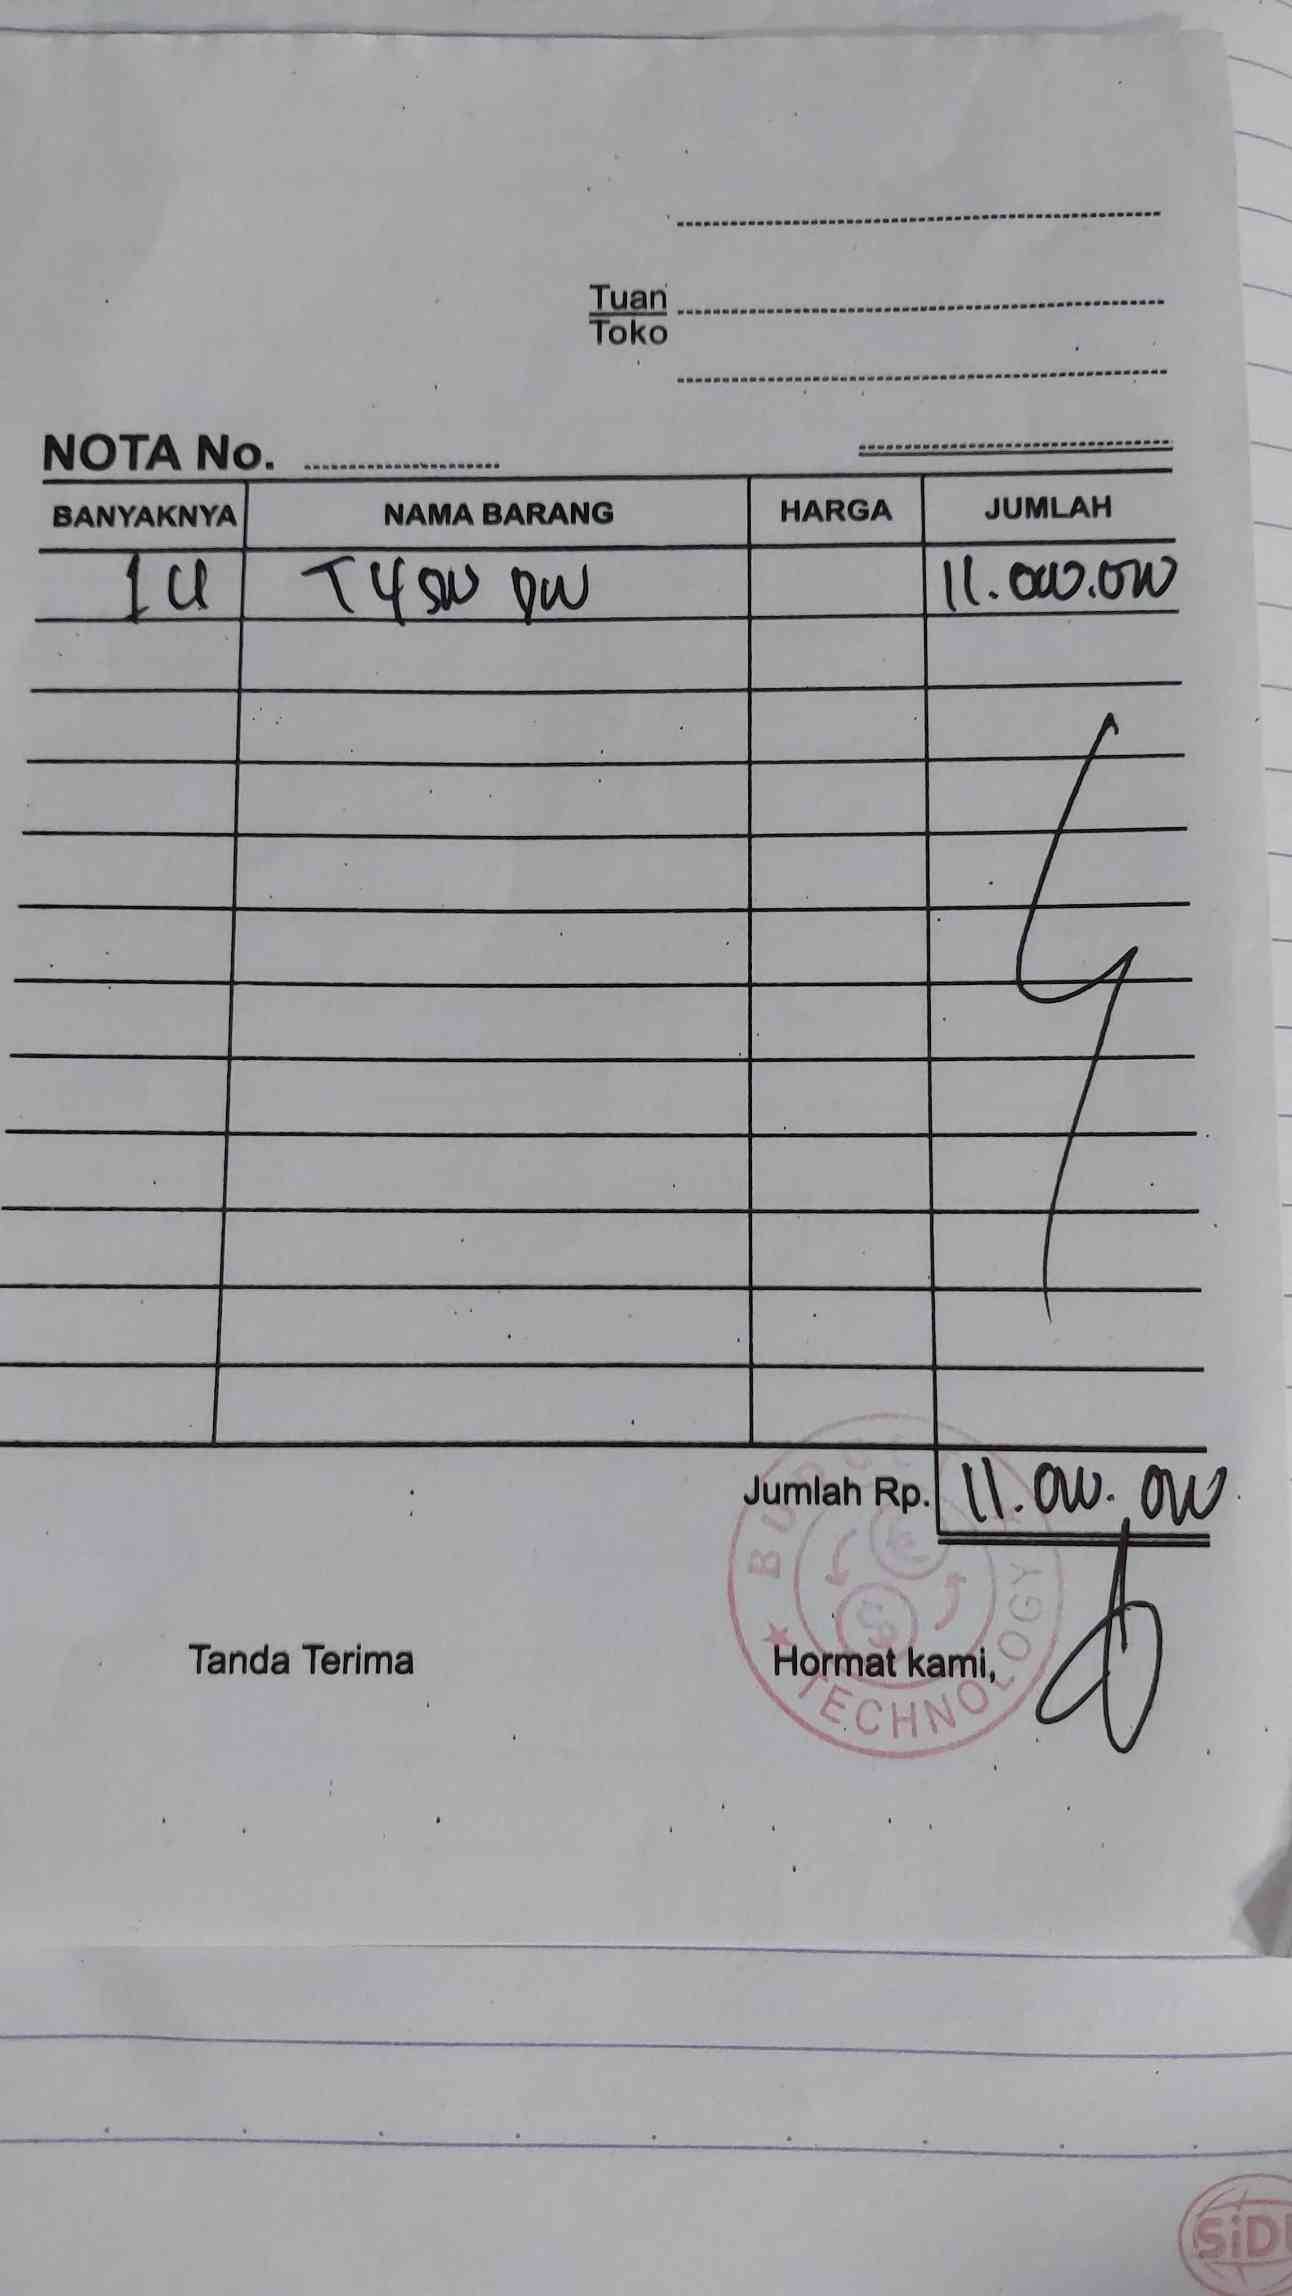 Tuan
Toko
NOTA No.
BANYAKNYA NAMA BARANG HARGA JUMLAH
11.000.000
Jumlah Rp. 11.000.000
Tanda Terima Hormat kami,
TECHNOLOGY
SiDU